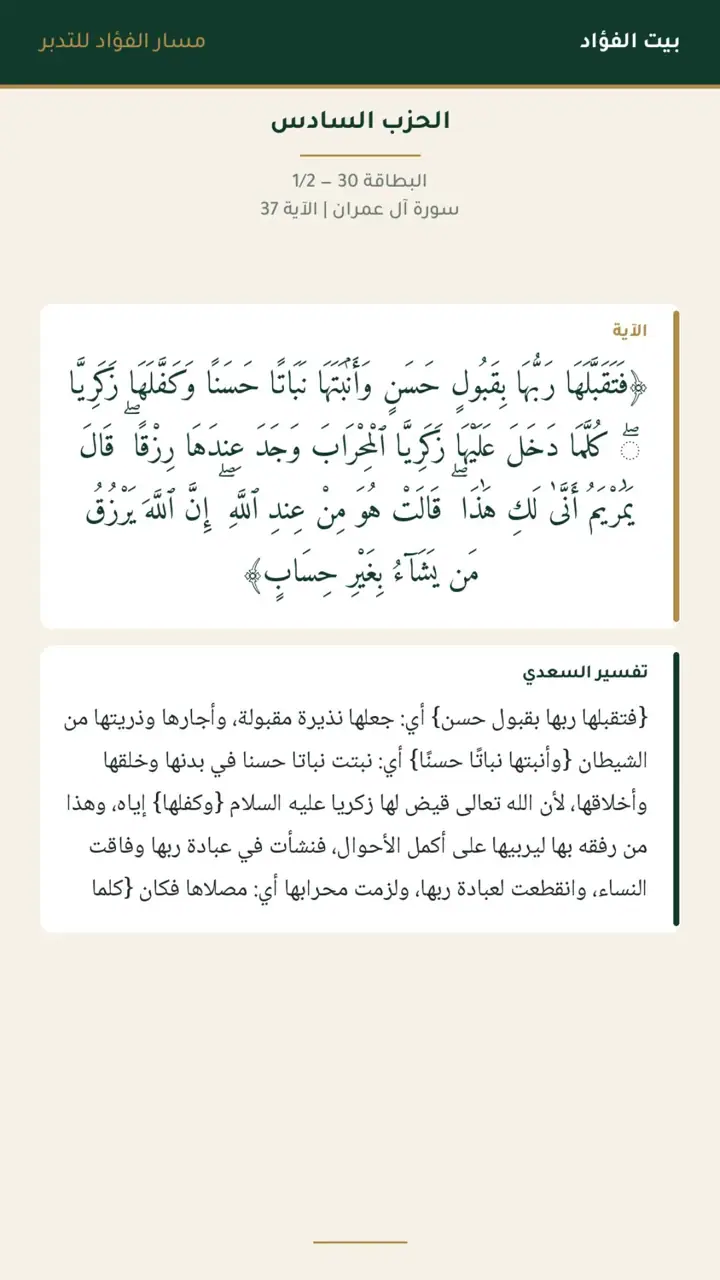 بيت الفؤاد
مسار الفؤاد للتدبر
الحزب السادس
البطاقة 30 – 1/2
سورة آل عمران | الآية 37
الآية
﴿فَتَقَبَّلَهَا رَبُّهَا بِقَبُولٍ حَسَنٍ وَأَنۢبَتَهَا نَبَاتًا حَسَنًا وَكَفَّلَهَا زَكَرِيَّا
ۖ كُلَّمَا دَخَلَ عَلَيْهَا زَكَرِيَّا ٱلْمِحْرَابَ وَجَدَ عِندَهَا رِزْقًا ۖ قَالَ
يَٰمَرْيَمُ أَنَّىٰ لَكِ هَٰذَا ۖ قَالَتْ هُوَ مِنْ عِندِ ٱللَّهِ ۖ إِنَّ ٱللَّهَ يَرْزُقُ
مَن يَشَآءُ بِغَيْرِ حِسَابٍ﴾
تفسير السعدي
{فتقبلها ربها بقبول حسن} أي: جعلها نذيرة مقبولة، وأجارها وذريتها من
الشيطان {وأنبتها نباتًا حسنًا} أي: نبتت نباتا حسنا في بدنها وخلقها
وأخلاقها، لأن الله تعالى قيض لها زكريا عليه السلام {وكفلها} إياه، وهذا
من رفقه بها ليربيها على أكمل الأحوال، فنشأت في عبادة ربها وفاقت
النساء، وانقطعت لعبادة ربها، ولزمت محرابها أي: مصلاها فكان {كلما